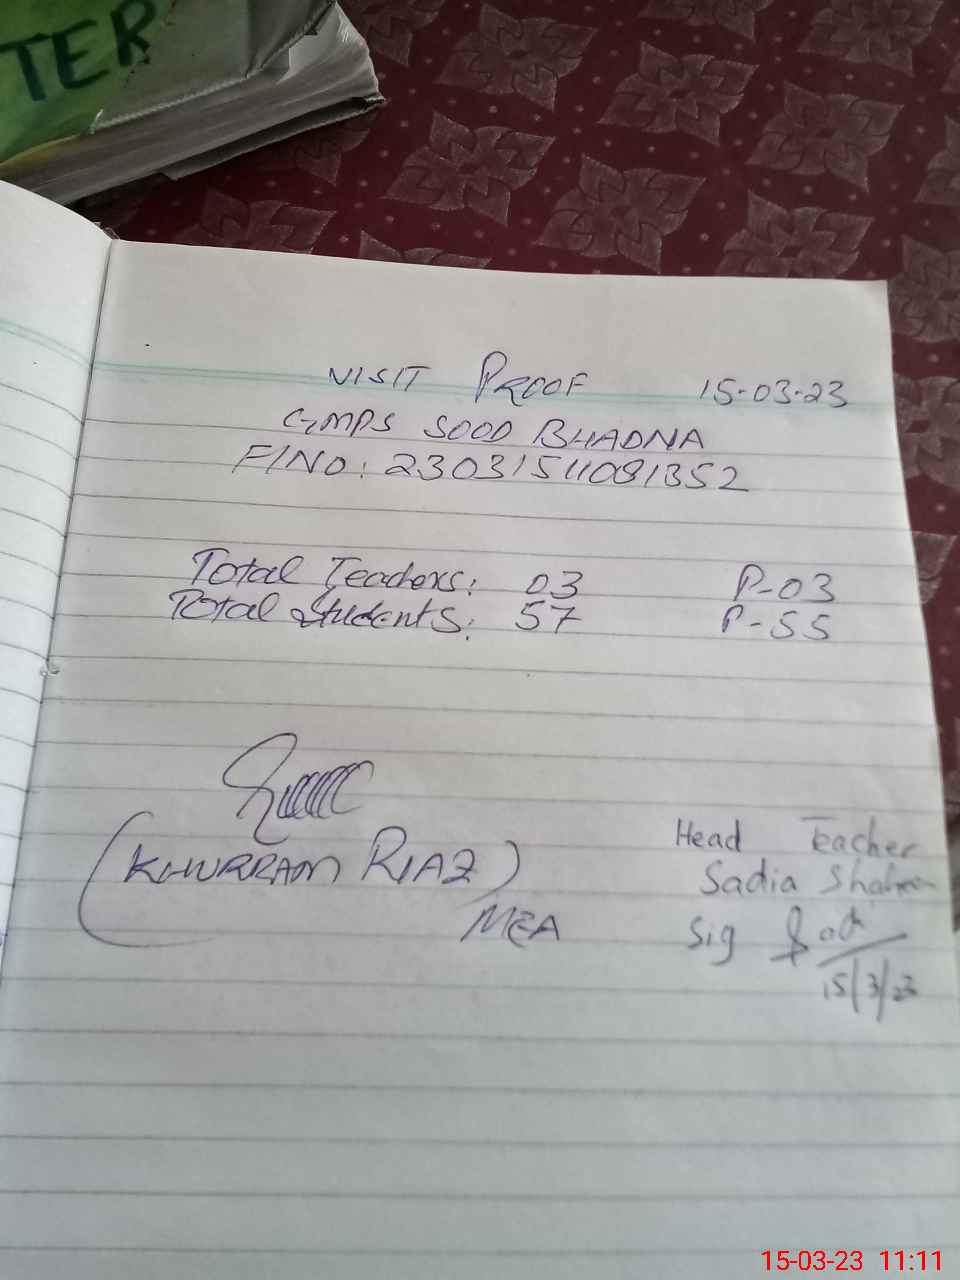 TER
VISIT PROOF 15-03-23
GMPS SOOD BHADNA
F/NO: 23031511081352
Total Teachers: 03 P-03
Total Students: 57 P-55
(KHURRAM RIAZ)
MEA
Head Teacher
Sadia Shaheen
Sig
15/3/23
15-03-23 11:11